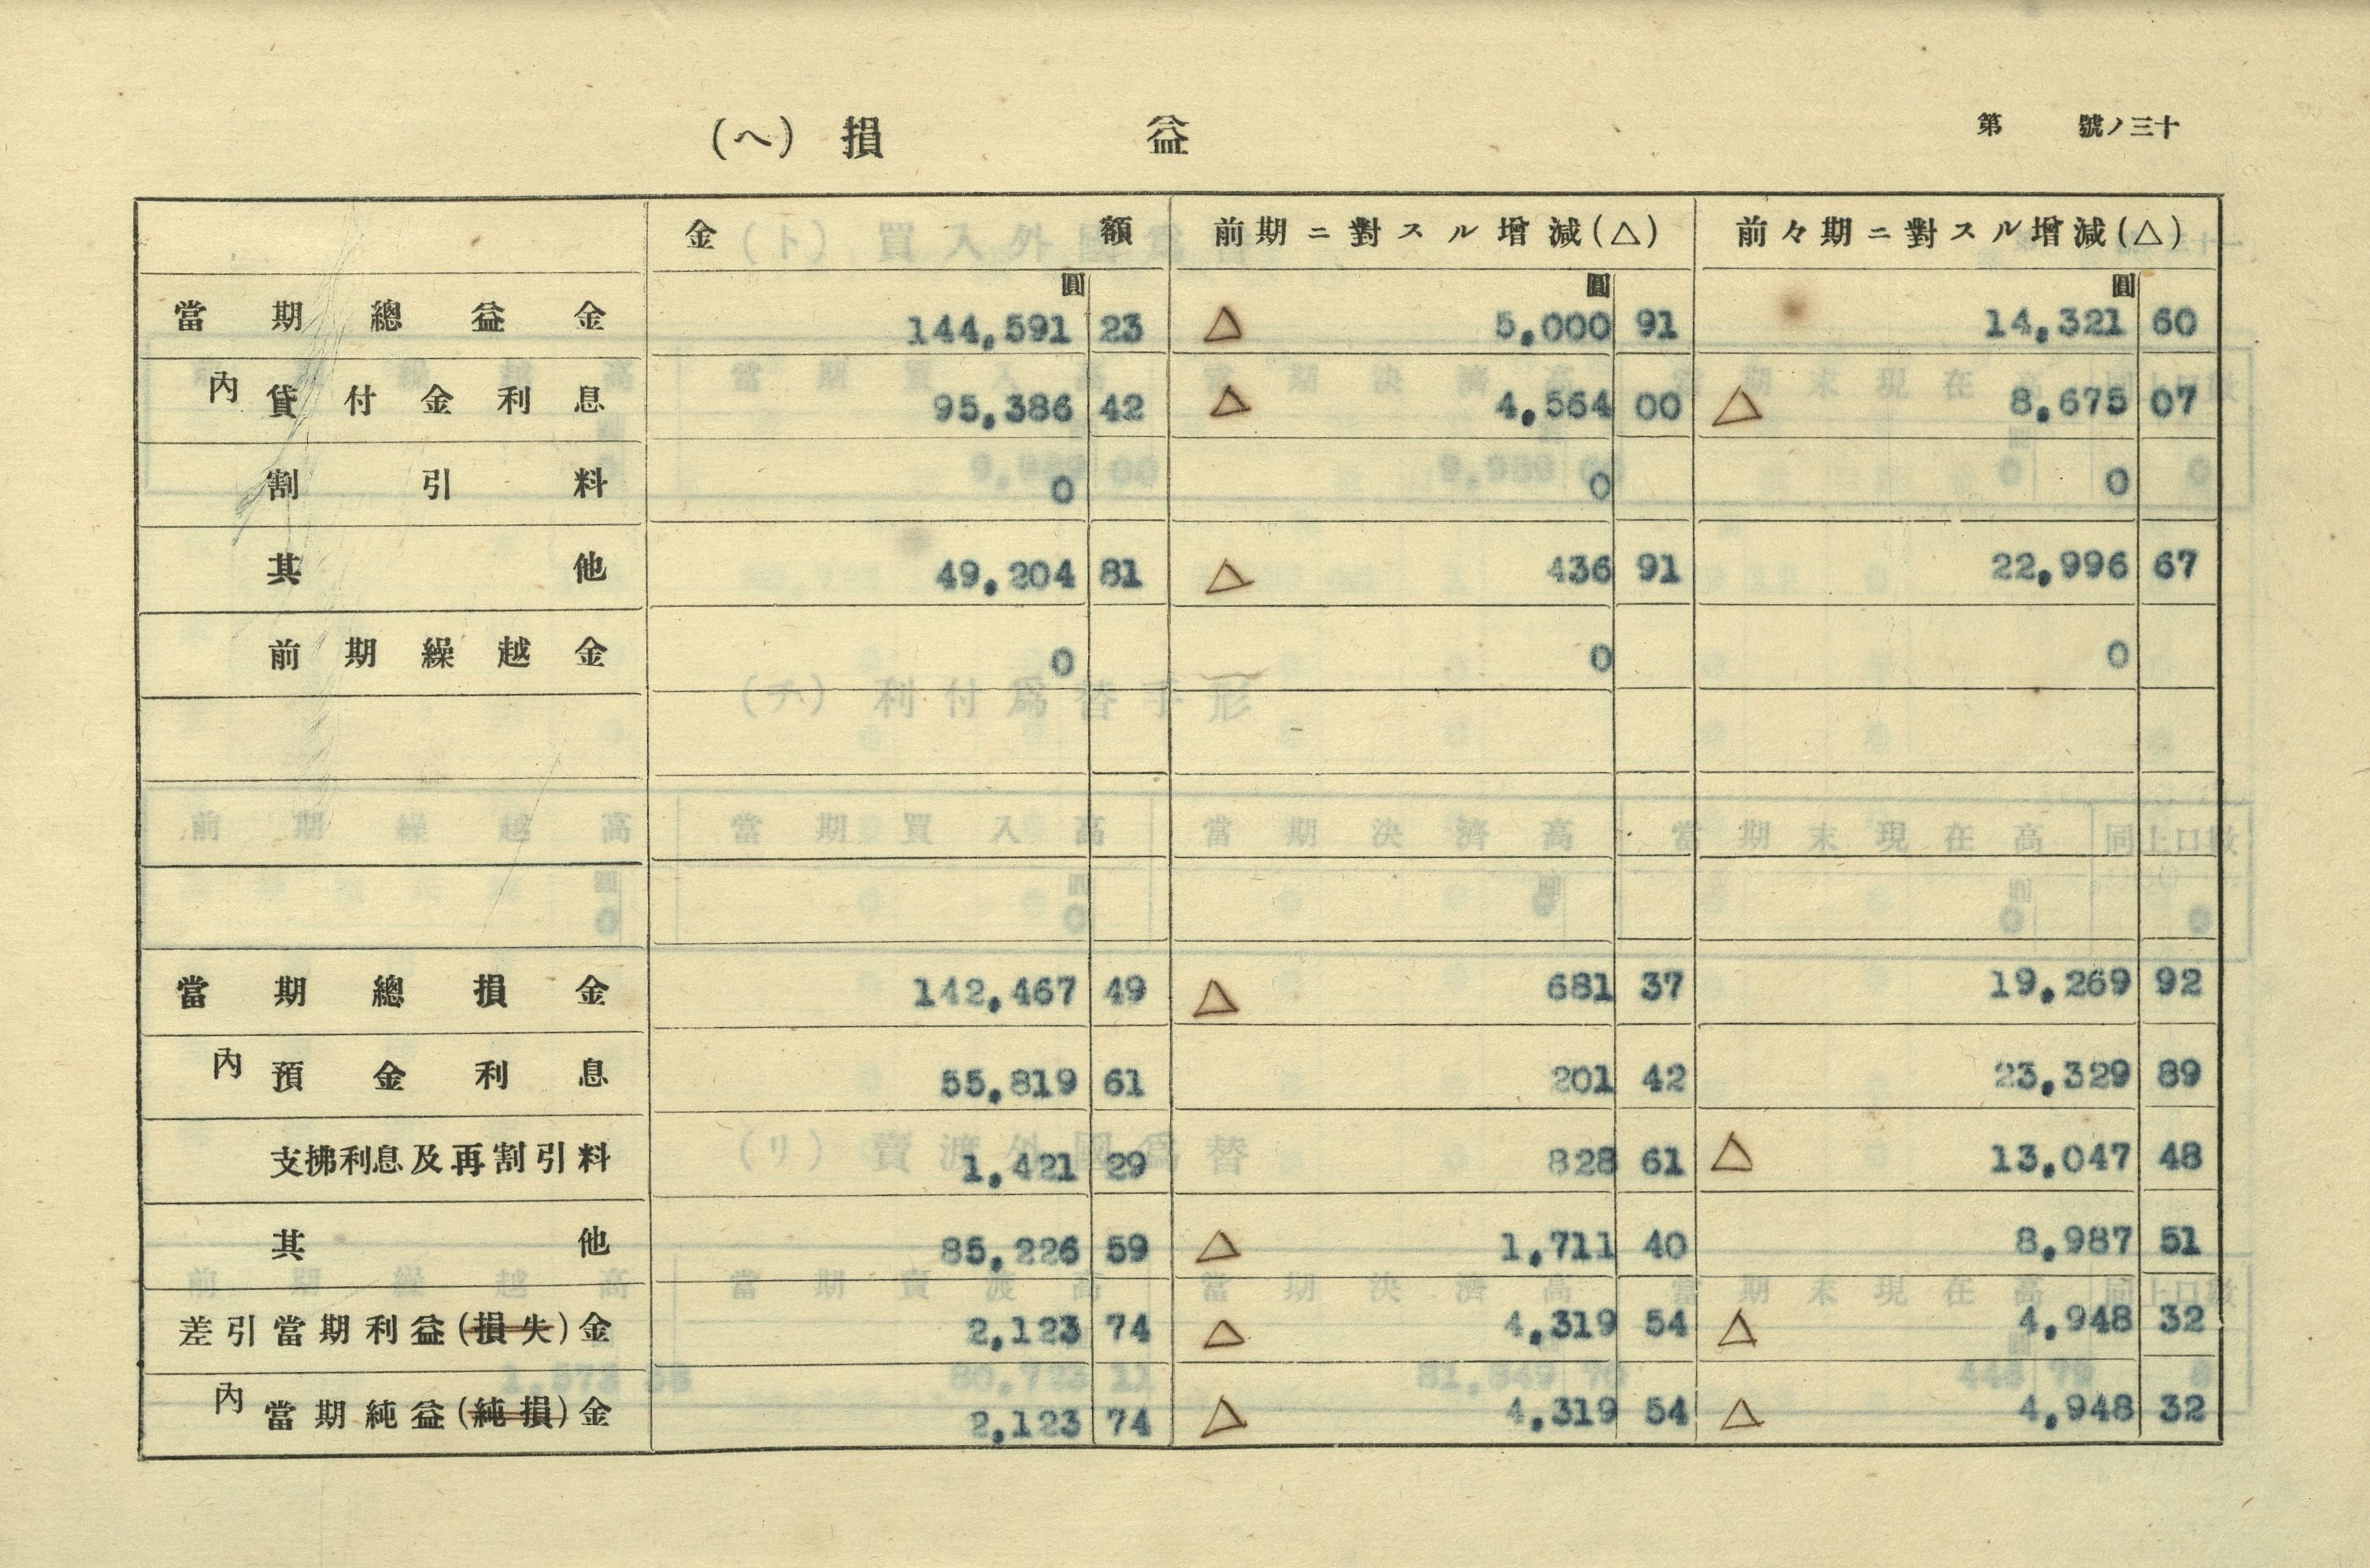 (ヘ) 損 益
第 號ノ三十
金 額 前期ニ對スル增減(△) 前々期ニ對スル增減(△)
圓 圓 圓
當期總益金 144,591 23 △ 5,000 91 14,321 60
內 貸付金利息 95,386 42 △ 4,564 00 △ 8,675 07
割引料 0 0 0
其他 49,204 81 △ 436 91 22,996 67
前期繰越金 0 0 0
當期總損金 142,467 49 △ 681 37 19,269 92
內 預金利息 55,819 61 201 42 23,329 89
支拂利息及再割引料 1,421 29 828 61 △ 13,047 48
其他 85,226 59 △ 1,711 40 8,987 51
差引當期利益(損失)金 2,123 74 △ 4,319 54 △ 4,948 32
內 當期純益(純損)金 2,123 74 △ 4,319 54 △ 4,948 32